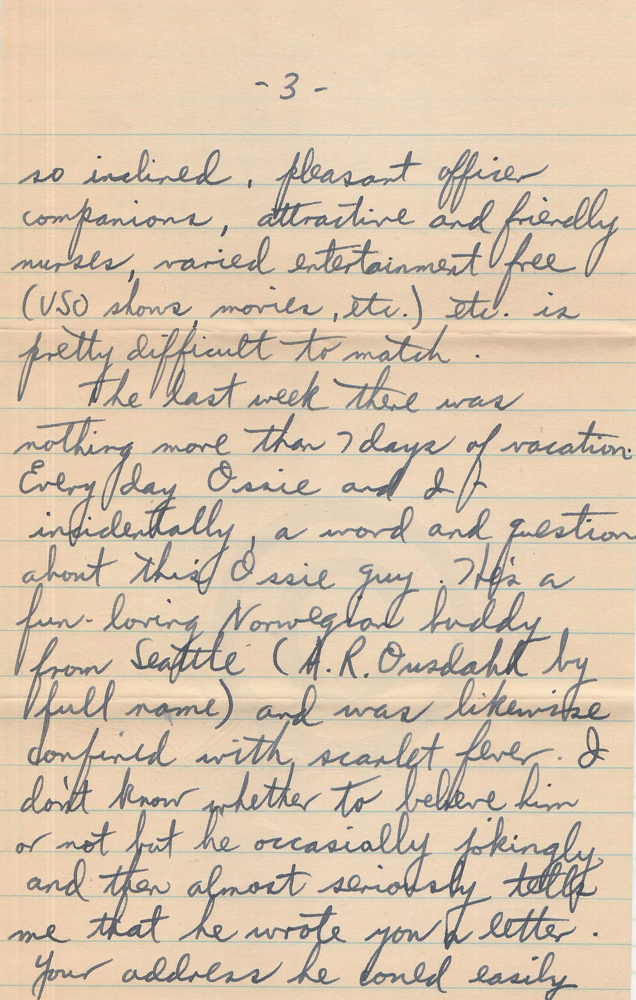 - 3 -
so inclined, pleasant officer
companions, attractive and friendly
nurses, varied entertainment free
(USO shows, movies, etc.) etc. is
pretty difficult to match.
The last week there was
nothing more than 7 days of vacation.
Every day Ossie and I
incidentally, a word and question
about this Ossie guy. He's a
fun-loving Norwegian buddy
from Seattle (A.R. Ousdahl by
full name) and was likewise
confined with scarlet fever. I
don't know whether to believe him
or not but he occasially jokingly,
and then almost seriously tells
me that he wrote you a letter.
Your address he could easily